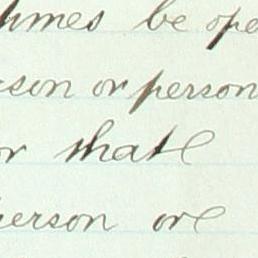 times be ope
rson or person
or that
person or